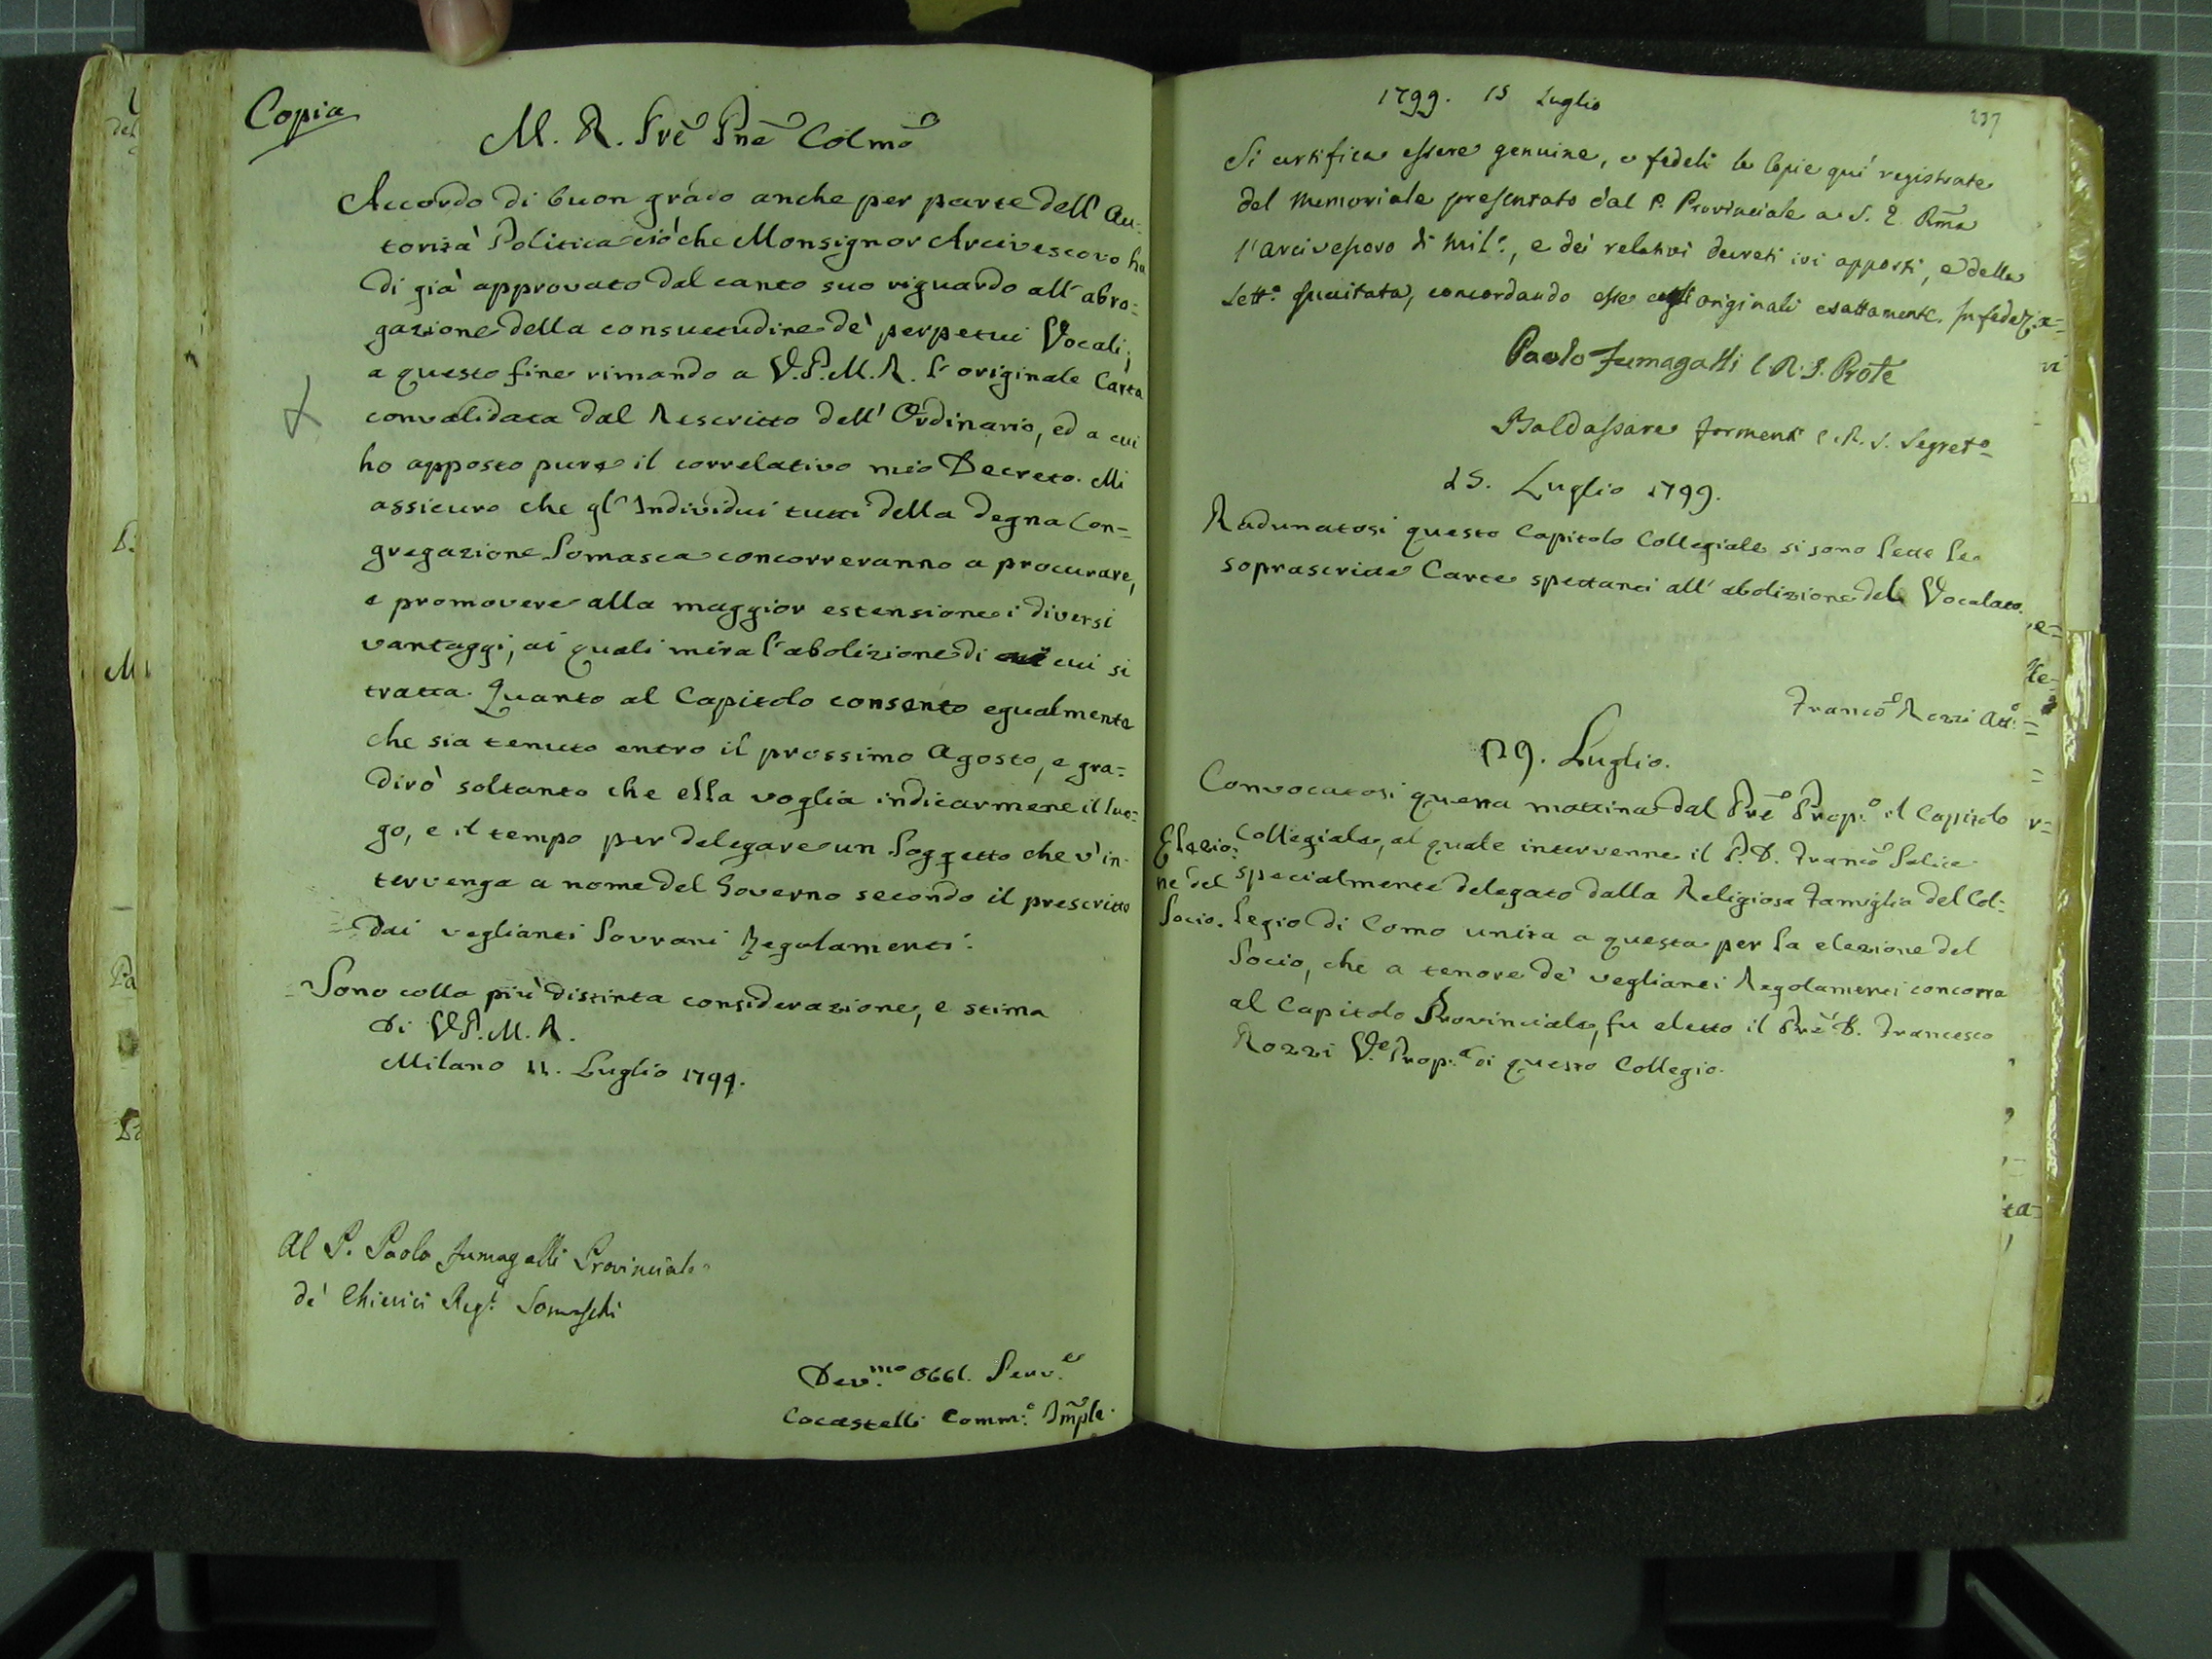 Copia
M. R. Prē Pnē Colmō
Accordo di buon grado anche per parte dell' Au-
torità Politica ciò che Monsignor Arcivescovo ha
di già approvato dal canto suo riguardo all' abro-
gazione della consuetudine de' perpetui Vocali;
a questo fine rimando a V.P.M.R. l' originale Carta
convalidata dal Rescritto dell' Ordinario, ed a cui
ho apposto pure il correlativo mio Decreto. Mi
assicuro che gl' Individui tutti della degna Con-
gregazione Somasca concorreranno a procurare,
e promovere alla maggior estensione i diversi
vantaggi, ai quali mira l' abolizione di cui si
tratta. Quanto al Capitolo consento egualmente
che sia tenuto entro il prossimo Agosto, e gra-
dirò soltanto che ella voglia indicarmene il luo-
go, e il tempo per delegare un Soggetto che v' in-
tervenga a nome del Governo secondo il prescritto
dai veglianti Sovrani Regolamenti.
Sono colla più distinta considerazione, e stima
Di V.P.M.R.
Milano 11. Luglio 1799.
Al P. Paolo Fumagalli Provinciale
de' Chierici Reg.i Somaschi
Dev.mo Obbl. Serv.e
Cocastelli Comm.o Imple.
1799. 15 Luglio
237
Si certifica essere genuine, e fedeli le Copie qui registrate
del Memoriale presentato dal P. Provinciale a S. E. Rm̄a
l' Arcivescovo di Mil.o, e dei relativi decreti ivi apposti, e della
Lett.a succitata, concordando esse cogli originali esattamente. In fede
Paolo Fumagalli C.R.S. Prōle
Baldassare Formenti C.R.S. Segret.o
15. Luglio 1799.
Radunatosi questo Capitolo Collegiale si sono lette le
soprascritte Carte spettanti all' abolizione del Vocalato.
Franc.o Rozzi Att.o
29. Luglio.
Convocatosi questa mattina dal Prē Prop.o il Capitolo
Elezio- Collegiale, al quale intervenne il P. D. Franc.o Salice
ne del specialmente delegato dalla Religiosa Famiglia del Col-
Socio. legio di Como unita a questa per la elezione del
Socio, che a tenore de' veglianti Regolamenti concorra
al Capitolo Provinciale, fu eletto il Prē D. Francesco
Rozzi V.e Prop.o di questo Collegio.